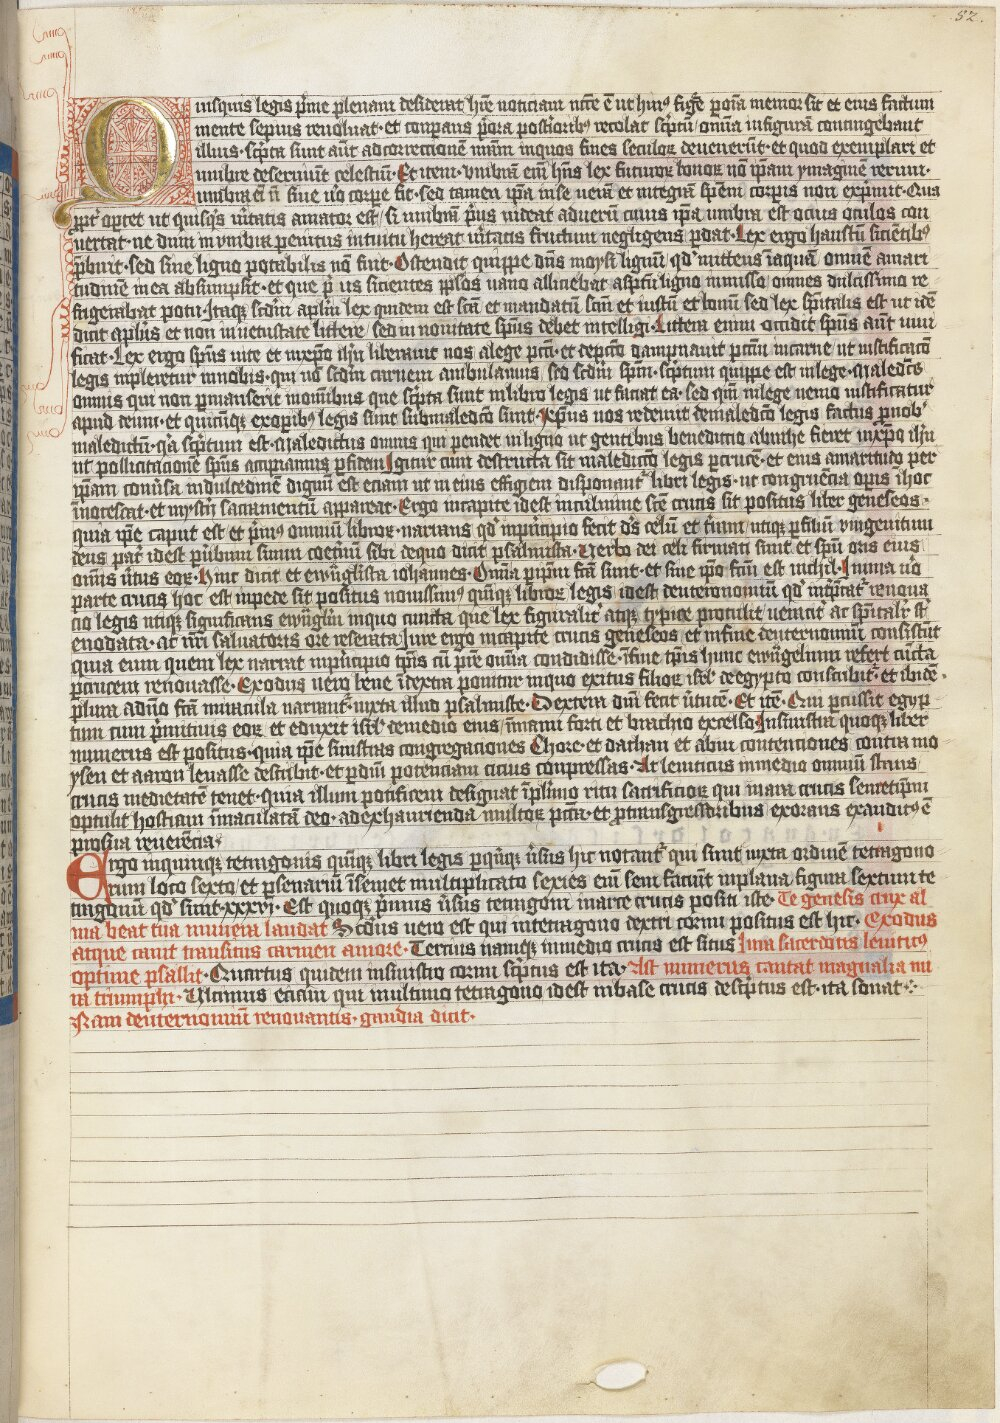 52.
Quisquis legis p̄me plenam desiderat hr̄e noticiam nēce ē ut huiꝰ figᵉ p oīa memor sit et eius factum
mente sepius reuoluat · et conparans p̄ora postioribꝰ recolat scͥptū / omīa in figurā contingebant
illius · scͥpta sunt aūt ad correctionem nr̄am in quos fines seculoꝝ deuenerūt · et quod exemplari et
umbre deseruiūt celestiū · Et item · vmbrā em̄ hn̄s lex futuroꝝ bonoꝝ nō ip̄am ymaginē rerum ·
umbra em̄ n̄ sine uͦo corpe fit · sed tamen ip̄a in se uerā et integrā spēm corpis non exprimit · Qua
ppͭ optet ut quisqͥs uͥtatis amator est / si umbrā pͥus uideat aduertī cuius ip̄a umbra est ocius oculos con
uertat · ne dum in vmbra penitus intuitu hereat uͥtatis fructum negligens pdat · Lex ergo haustū sicientibꝰ
p̄buit · sed sine ligno potabilis nō fuit · Ostendit quippe dn̄s moysi lignū / qd̓ mittens in aquā omnē amari
tudinē in ea absumpsit · et que pͥus sicientes pplos uano alliciebat aspctū ligno inmisso omnes dulcissimo re
frigerabat potu · Itaqꝫ scd̄m aplm̄ lex quidem est scā et mandatū scm̄ et iustū et bonū sed lex spūalis est ut idē
dicit aplūs et non in uetustate littere / sed in nouitate spūs debet intelligi · Littera enim occidit spūs aūt uiui
ficat · Lex ergo spūs uite et in xp̄o ihū liberauit nos a lege pcti · et de pctō dampnauit pctm̄ in carne / ut iustificacō
legis inpleretur in nobis · qui nō scd̄m carnem ambulamus / sed scd̄m spm̄ · scͥptum quippe est in lege · Maledcūs
omnis qui non pmanserit in omībus que scͥpta sunt in libro legis ut faciat ea · sed qm̄ in lege nemo iustificatur
apud deum · et quicūqꝫ ex opibꝰ legis sunt sub maledcō sunt · Xp̄us nos redemit de maledcō legis factus p nobꝭ
maledictū · qͥa scͥptum est · Maledictus omnis qui pendet in ligno ut gentibus benedictio abrahe fieret in xp̄o ihū
ut pollicitacionē spūs accipiamus p fidem Igitur cum destructa sit maledictō legis p crucē · et eius amaritudo per
ip̄am conuͥsa in dulcedinē dignū est eciam ut in eius effigiem disponantͬ libri legis · ut congruencia opis in hoc
innotescat · et mysticū sacramentū appareat · Ergo in capite idest in culmine scē crucis sit positus liber geneseos ·
quia ip̄e caput est et pͥmꝰ omnium libroꝝ · narrans qd̓ in pͥncipio fecit ds̄ celū et tͬram / utiqꝫ p filiū vnigenitum
deus patͬ idest p ūbum suum coetͬnū sibi de quo dicit psalmista · Verbo dei celi firmati sunt et spū oris eius
omīs uͥtus eoꝝ · Hinc dicit et ewͣgͨlista iohannes · Omīa p ip̄m fcā sunt · et sine ip̄o fcm̄ est nichil · In ima uͦo
parte crucis hoc est in pede sit positus nouissimꝰ quīqꝫ libroꝝ legis idest deuteronomiū qd̓ intͬptatͬ renoua
cio legis utiqꝫ significans ewͣgͨlm̄ in quo cuncta que lex figuraliͬ atqꝫ typice protulit / ueraciͬ ac spūaliͬ st̄
enodata · ac nr̄i saluatoris ore reserata / Iure ergo in capite crucis geneseos et in fine deuternomiū consistūt
quia eum quem lex narrat in pͥncipio tp̄is cū pͬre omīa condidisse · in fine tp̄is hunc ewͣngelium refert cūcta
p crucem renouasse · Exodus uero bene in dextra ponitur in quo exitus filioꝝ isrl̓ de egypto conscribitͬ · et ibidē
plura a dn̄o fcā miracula narrantͬ · iuxta illud psalmiste · Dextera dn̄i fecit uͥtutē · Et itē · Qui pcussit egyp
tum cum pͥmitiuis eoꝝ et eduxit isrl̓ de medio eius / in manu forti et brachio excelso · In sinistra quoqꝫ liber
numerus est positus · quia ip̄e sinistras congregaciones Chore · et dathan et abiu contentiones contra mo
ysen et aaron leuasse describit · et p dīnī potenciam cicius conpressas · At leuiticus in medio omniū situs
crucis medietatē tenet · quia illum pōtificem designat in pͥstino ritu sacrificioꝝ qui in ara crucis semetip̄m
optulit hostiam inmaculatā deo · ad exhaurienda multoꝝ pctā · et p transgressoribus exorans exauditꝰ ē
pro sua reuerēcia ·
Ergo in quinqꝫ tetragonis quīqꝫ libri legis p quīqꝫ uͥsus hic notantͬ qui sunt iuxta ordinē tetragono
rum loco sexto / et p senariū in semet multiplicato sexies em̄ seni faciūt in plana figura sextum te
tragonū qd̓ sunt · xxxvi · Est quoqꝫ pͥmus uͥsus tetragoni in arce crucis positi iste · Te genesis crux al
ma beat tua munera laudat Scd̄us uero est qui in tetragono dextri cornu positus est hic · Exodus
atque canit transitus carmen amore · Tercius namqꝫ in medio crucis est situs Iura sacerdotis leuiticꝰ
optime psallit · Quartus quidem in sinistro cornu scͥptus est ita · Ast numerus cantat magnalia mi
ra triumphi · Ultimus eteīm qui in ultimo tetragono idest in base crucis descͥptus est · ita sonat ·:·
Nam deuternomiū renouantis · gaudia dicit ·